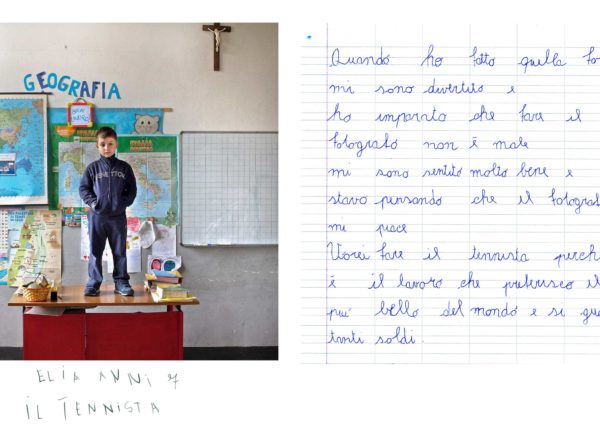 GEOGRAFIA
BENETTON
ELIA ANNI 7
IL TENNISTA
Quando ho fatto quella fo
mi sono divertito e
ho imparato che fare il
fotografo non è male
mi sono sentito molto bene e
stavo pensando che il fotograf
mi piace
Vorei fare il tennista perch
è il lavoro che preferisco il
più bello del mondo e si gua
tanti soldi.